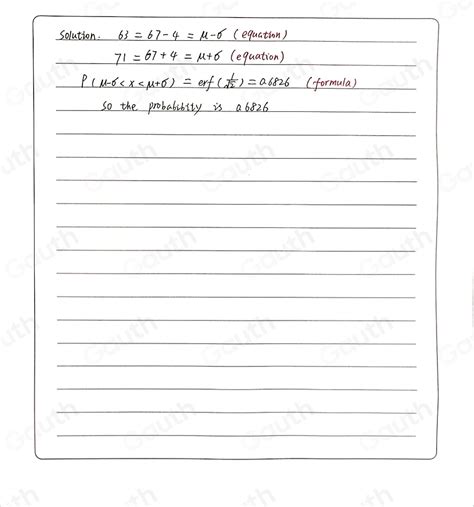 Solution. 63 = 67 - 4 = μ-σ (equation)
71 = 67 + 4 = μ+σ (equation)
P(μ-σ < x < μ+σ) = erf(1/√2) = 0.6826 (formula)
So the probability is 0.6826
Gauth